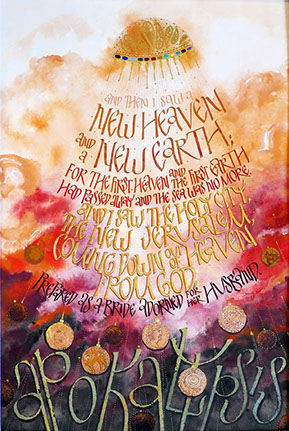 AND THEN I SAW A
NEW HEAVEN
and a NEW EARTH;
FOR THE FIRST HEAVEN and THE FIRST EARTH
HAD PASSED AWAY AND THE SEA WAS NO MORE.
AND I SAW THE HOLY CITY
THE NEW JERUSALEM
COMING DOWN out of HEAVEN
FROM GOD
PREPARED AS A BRIDE ADORNED FOR HER HUSBAND.
APOKALYPSIS